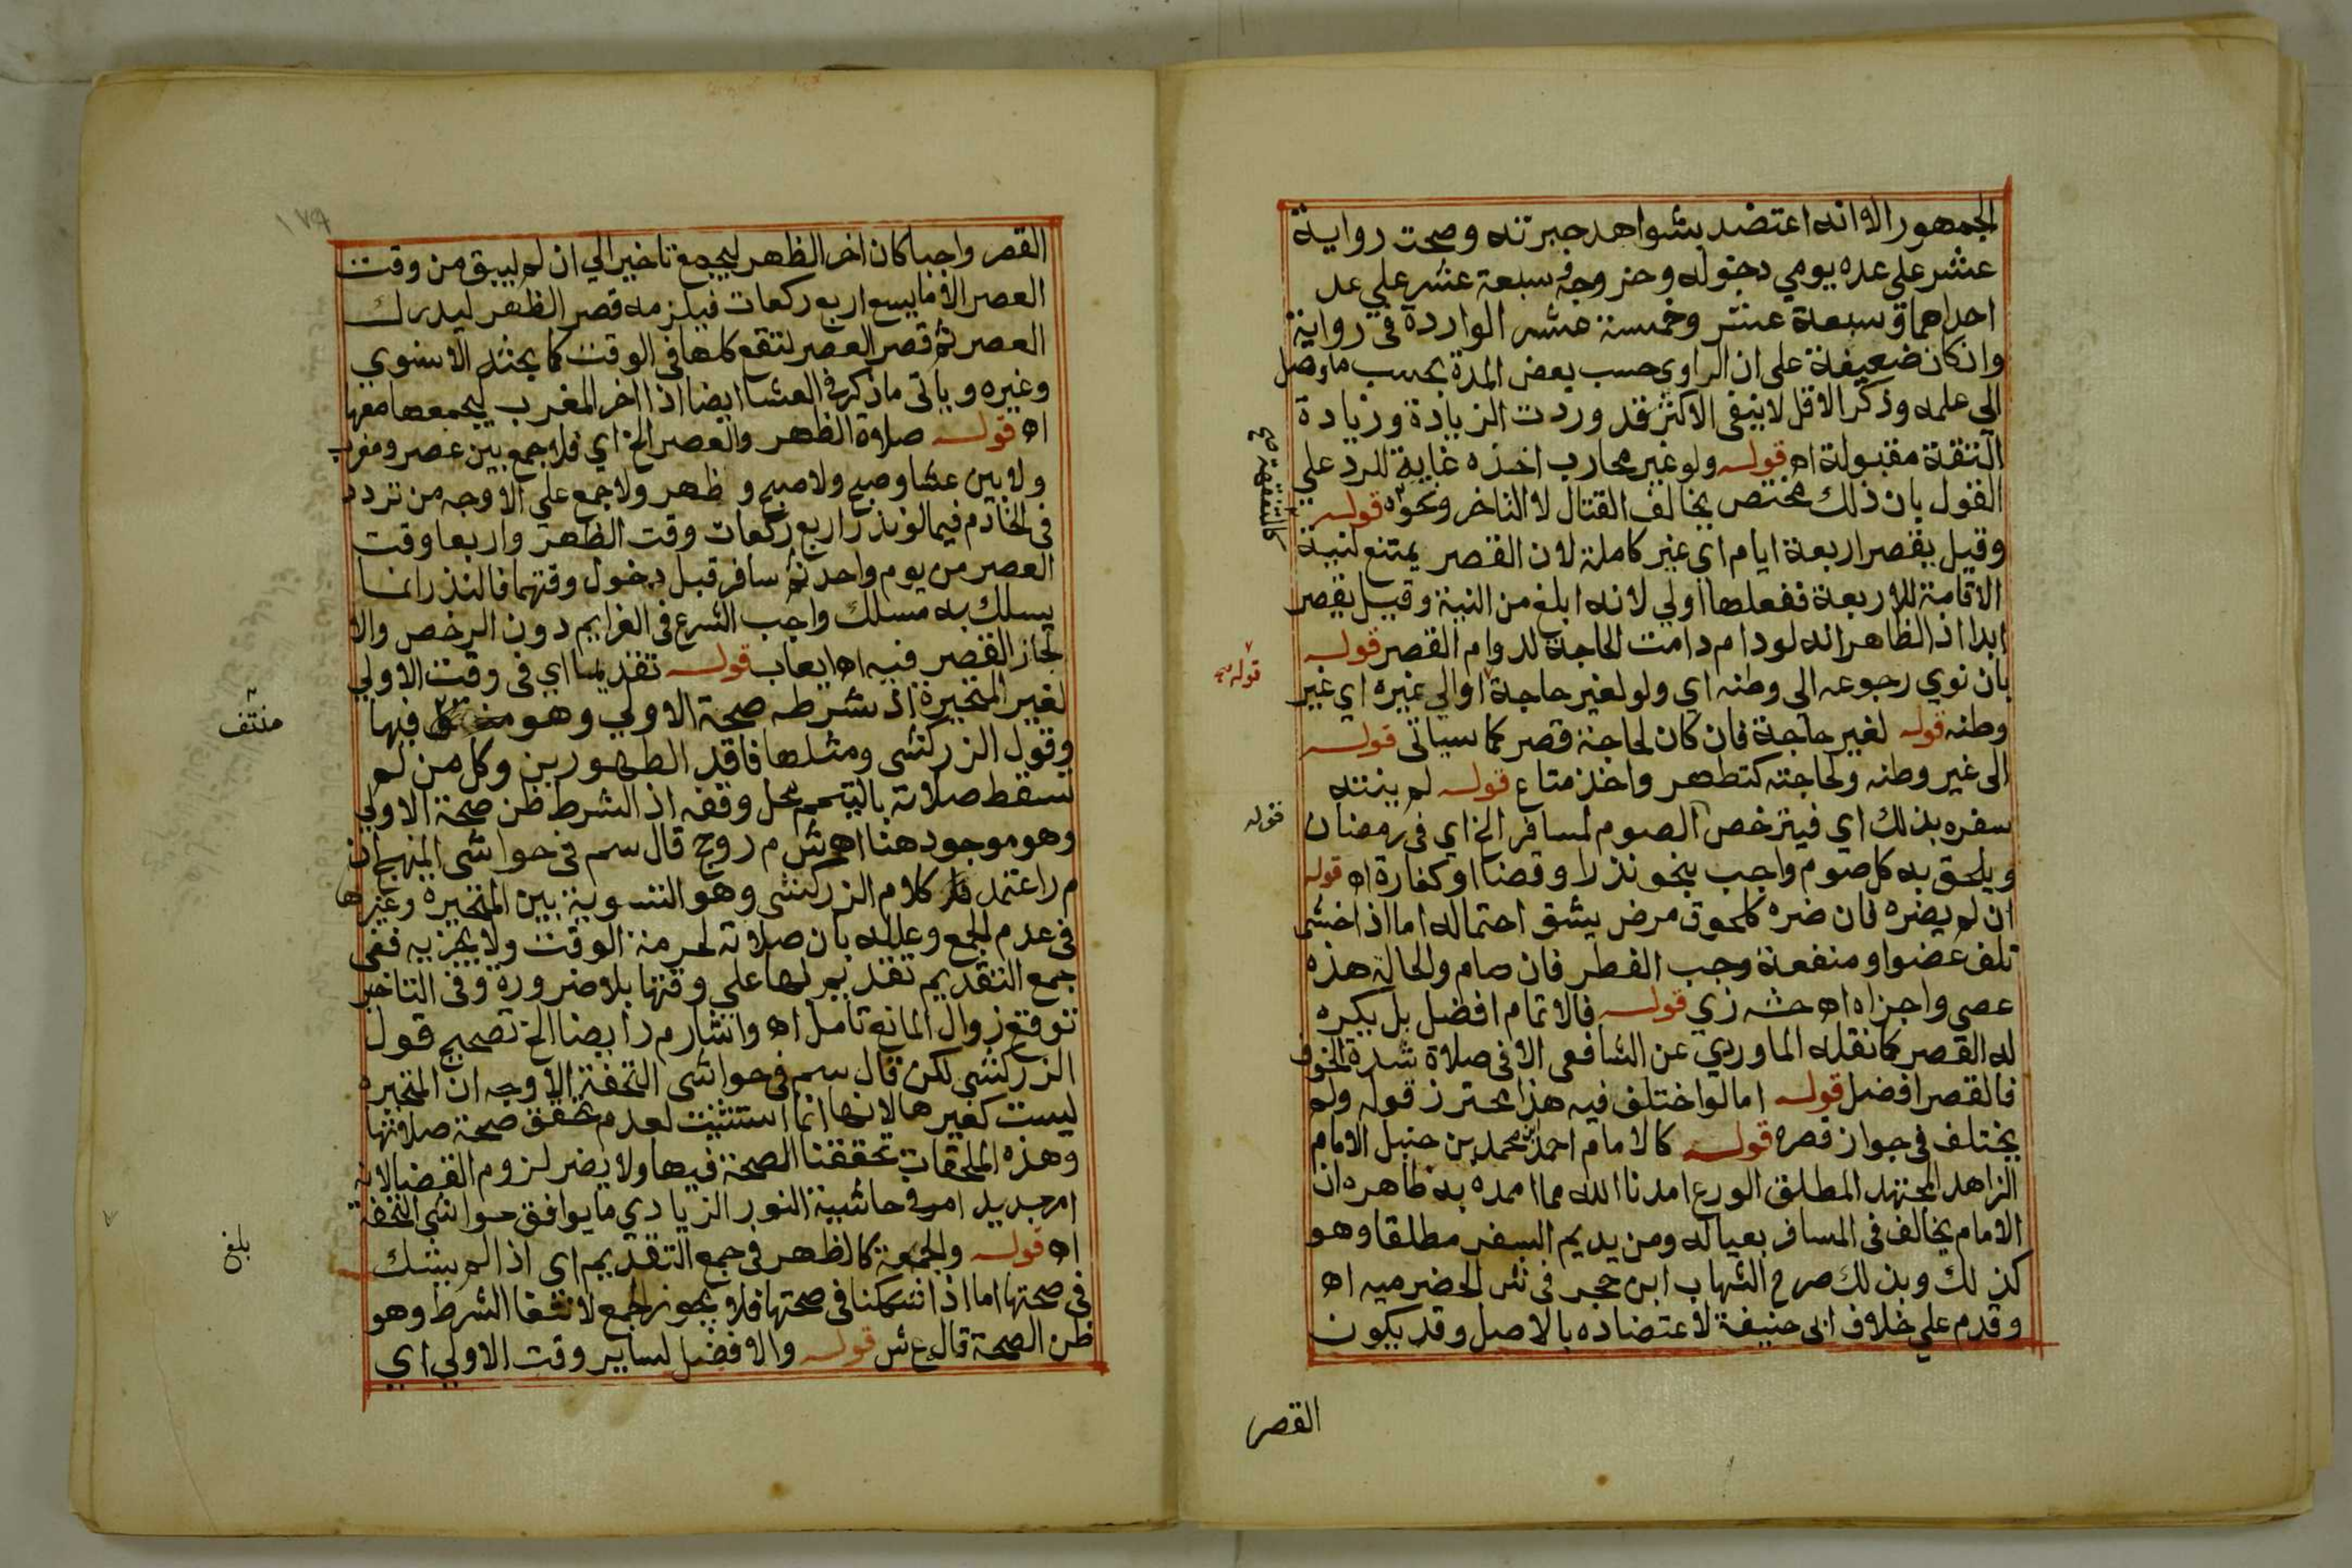 الجمهور الا انه اعتضد بشواهد جبرته وصحت رواية
عشر على عده يومي دخوله وخروجه سبعة عشر علي عد
احداهما وسبعة عشر وخمسة عشر الواردة في رواية
وان كان ضعيفة على ان الراوي حسب بعض المدة بحسب ما وصل
الى علمه وذكر الاقل لا ينفى الاكثر فقد وردت الزيادة وزيادة
الثقة مقبولة اه قوله ولو غير محارب اخذه غاية للرد علي
القول بان ذلك مختص بخالف القتال لا التاخر ونحوه قوله
كالمتفقهة صح
وقيل يقصر اربعة ايام اي غير كاملة لان القصر يمتنع لنية
الاقامة للاربعة ففعلها اولي لانه ابلغ من النية وقيل يقصر
ابدا اذ الظاهر انه لو دام دامت الحاجة لدوام القصر قوله
بان نوي رجوعه الى وطنه اي ولو لغير حاجة اوالي غيره اي غير
قوله صح
وطنه قوله لغير حاجة فان كان لحاجة قصر كما سياتى قوله
الى غير وطنه ولحاجته كتطهر واخذ متاع قوله لم ينته
سفره بذلك اي فيترخص الصوم لمسافر الخ اي في رمضان
قوله
ويلحق به كل صوم واجب بنحو نذر او قضا او كفارة اه قوله
ان لم يضره فان ضره كلحوق مرض يشق احتماله اما اذا خشى
تلف عضو او منفعة وجب الفطر فان صام والحالة هذه
عصى واجزاه اه حشه زي قوله فالاتمام افضل بل يكره
له القصر كما نقله الماوردي عن الشافعى الا فى صلاة شدة الخوف
فالقصر افضل قوله اما لو اختلف فيه هذا محترز قوله ولم
يختلف في جواز قصره قوله كالامام احمد بن محمد بن حنبل الامام
الزاهد المجتهد المطلق الورع امدنا الله مما امده به ظاهره ان
الامام يخالف فى المسافر بعياله ومن يديم السفر مطلقا وهو
كذلك وبذلك صرح الشهاب ابن حجر في ش الحضرميه اه
وقدم علي خلاف ابى حنيفة لاعتضاده بالاصل وقد يكون
القصر
القصر واجبا كان اخر الظهر ليجمع تاخيرا الي ان لم يبق من وقت
العصر الا ما يسع اربع ركعات فيلزمه قصر الظهر ليدرك
العصر ثم قصر العصر لتقع كلها في الوقت كما بحثه الاسنوي
وغيره وياتى ما ذكر في العشا ايضا اذا اخر المغرب ليجمعها معها
اه قوله صلاة الظهر والعصر الخ اي فلا جمع بين عصر ومغرب
ولا بين عشا وصبح ولا صبح و ظهر ولا جمع علي الاوجه من تردد
فى الخادم فيما لو نذر اربع ركعات وقت الظهر واربعا وقت
العصر من يوم واحد ثم سافر قبل دخول وقتهما فالنذر انما
يسلك به مسلك واجب الشرع في العزايم دون الرخص والا
لجاز القصر فيه اه ايعاب قوله تقديما اي في وقت الاولي
لغير المتحيرة اذ شرطه صحة الاولي وهو فيها
منتف
وقول الزركشى ومثلها فاقد الطهورين وكل من لم
تسقط صلاته بالتيمم محل وقفه اذ الشرط ظن صحة الاولي
وهو موجود هنا اه ش م ر وح قال سم في حواشى المنهج ان
م ر اعتمد كلام الزركشى وهو التسوية بين المتحيرة وغيرها
فى عدم الجمع وعلله بان صلاته لحرمة الوقت ولا يجزيه ففى
جمع التقديم تقديم لها علي وقتها بلا ضرورة وفى التاخير
توقع زوال المانع تامل اه واشار م ر ايضا الخ تصحيح قول
الزركشى لكن قال سم فى حواشى التحفة الاوجه ان المتحيرة
ليست كغيرها لانها انما استثنيت لعدم تحقق صحة صلاتها
وهذه الملحقات تحققنا الصحة فيها ولا يضر لزوم القضا لانه
امر جديد اه وفي حاشية النور الزيادي ما يوافق حواشى التحفة
اه قوله والجمعة كالظهر في جمع التقديم اي اذا لم يشك
بلغ
فى صحتها اما اذا شككنا فى صحتها فلا يجوز الجمع لانتفا الشرط وهو
ظن الصحة قاله ع ش قوله والافضل لساير وقت الاولي اي